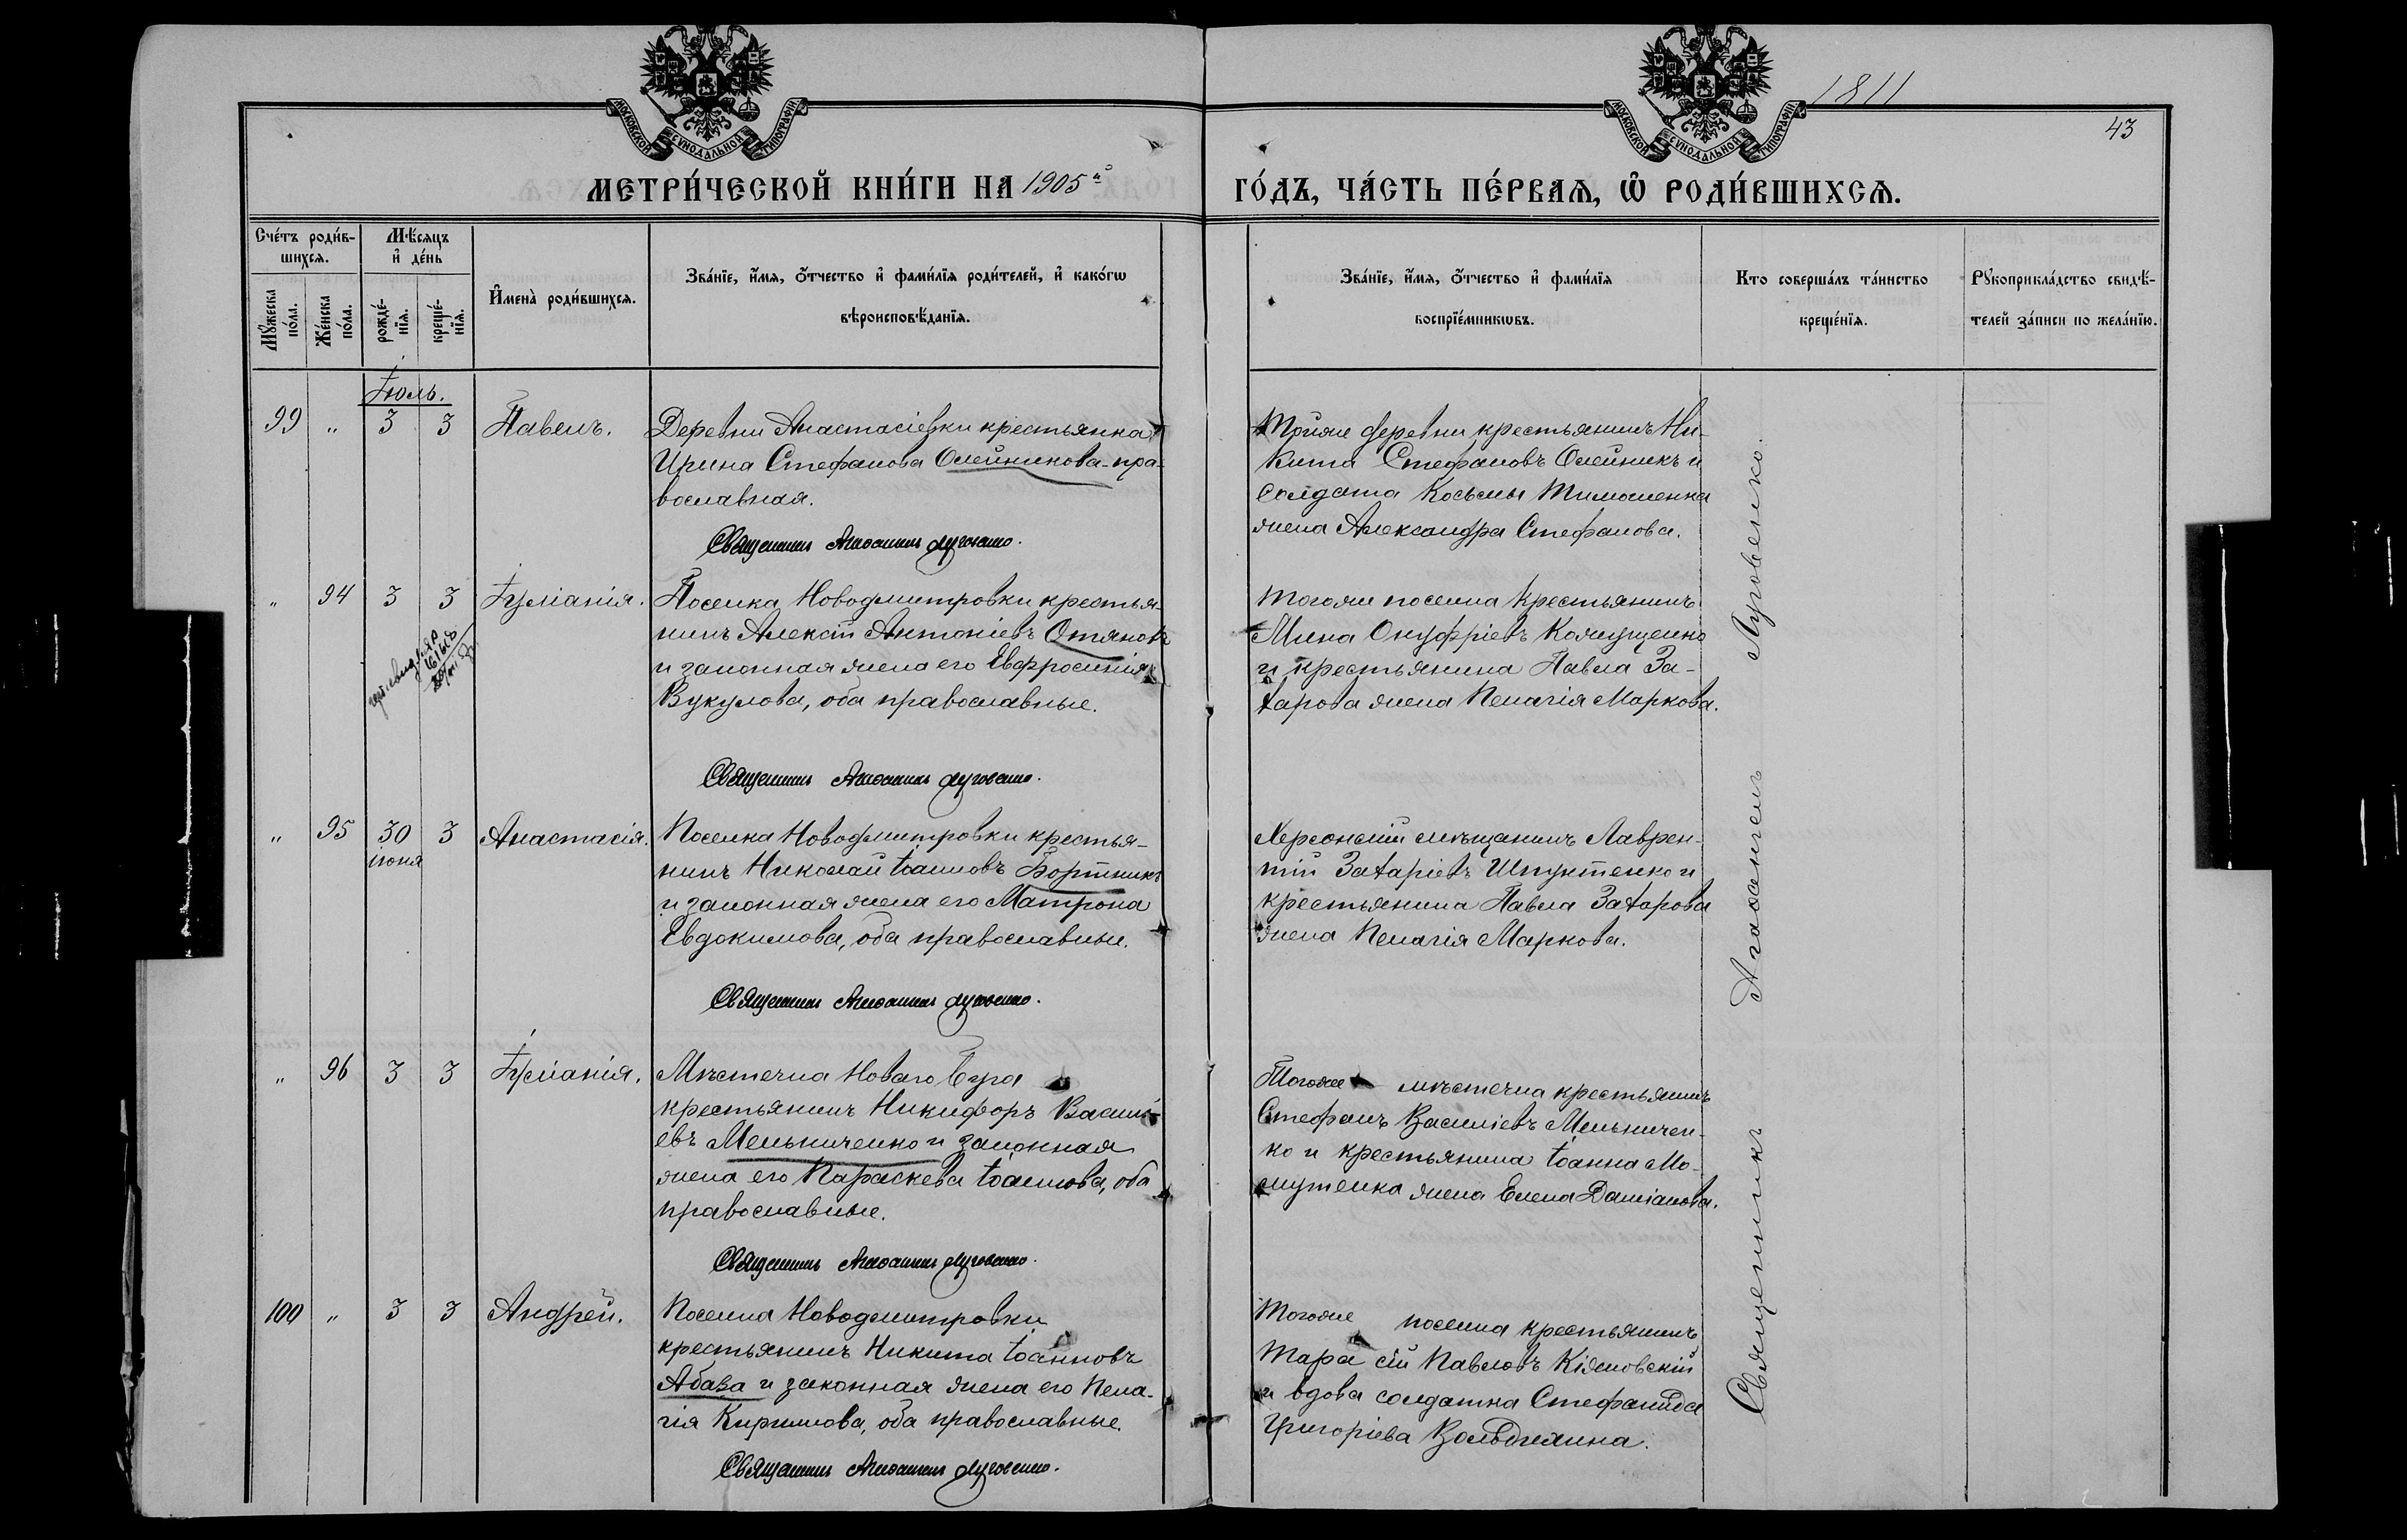 МОСКОВСКОЙ СѴНОДАЛЬНОЙ ТИПОГРАФІИ
МОСКОВСКОЙ СѴНОДАЛЬНОЙ ТИПОГРАФІИ
1811
43
МЕТРИ́ЧЕСКОЙ КНИ́ГИ НА 1905й
ГО́ДЪ, ЧА́СТЬ ПЕ́РВАѦ, Ѡ РОДИ́ВШИХСѦ.
Сче́тъ роди́в-
шихсѧ.
Мꙋ́жеска по́ла.
Же́нска по́ла.
Мѣ́сѧцъ
и҆ де́нь
рожде́-
нїѧ.
креще́-
нїѧ.
И҆мена̀ роди́вшихсѧ.
Зва́нїе, и҆́мѧ, ѻ҆́тчество и҆ фами́лїѧ роди́телей, и҆ како́гѡ
вѣроисповѣ́данїѧ.
Зва́нїе, и҆́мѧ, ѻ҆́тчество и҆ фами́лїѧ
воспрїе́мникѡвъ.
Кто соверша́лъ та́инство
креще́нїѧ.
Рꙋкоприкла́дство свидѣ́-
телей за́писи по жела́нїю.
Іюль.
99 " 3 3 Павелъ.
Деревни Анастасіевки крестьянка
Ирина Стефанова Олейникова - пра-
вославная.
Священникъ Агаѳангелъ Луговенко.
Тойже деревни крестьянинъ Ни-
кита Стефановъ Олейникъ и
солдата Косьмы Тимошенка
жена Александра Стефанова.
" 94 3 3 Іуліанія.
Поселка Новодмитровки крестья-
нинъ Алексій Антоніевъ Отянов
и законная жена его Евфросинія
Вукулова, оба православные.
Священникъ Агаѳангелъ Луговенко.
Тогоже поселка крестьянинъ
Мина Онуфріевъ Кожущенко
и крестьянина Павла За-
харова жена Пелагія Маркова.
" 95 30 3 Анастасія.
іюня
Поселка Новодмитровки крестья-
нинъ Николай Іоанновъ Бортникъ
и законная жена его Матрона
Евдокимова, оба православные.
Священникъ Агаѳангелъ Луговенко.
Херсонскій мѣщанинъ Лаврен-
тій Захаріевъ Шпуктенко и
крестьянина Павла Захарова
жена Пелагія Маркова.
" 96 3 3 Іуліанія.
Мѣстечка Новаго Буга
крестьянинъ Никифоръ Василі-
евъ Мельниченко и законная
жена его Параскева Іоаннова, оба
православные.
Священникъ Агаѳангелъ Луговенко.
Тогоже мѣстечка крестьянинъ
Стефанъ Василіевъ Мельничен-
ко и крестьянина Іоанна Мо-
шутенка жена Елена Даміанова.
100 " 3 3 Андрей.
Поселка Новодмитровки
крестьянинъ Никита Іоанновъ
Абаза и законная жена его Пела-
гія Кириллова, оба православные.
Священникъ Агаѳангелъ Луговенко.
Тогоже поселка крестьянинъ
Тарасій Павловъ Кіяновскій
и вдова солдатка Стефанида
Григоріева
Священникъ Агаѳангелъ Луговенко.